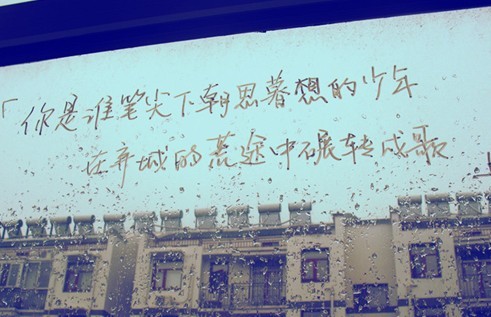 「你是谁笔尖下朝思暮想的少年
在弃城的荒途中碾转成歌